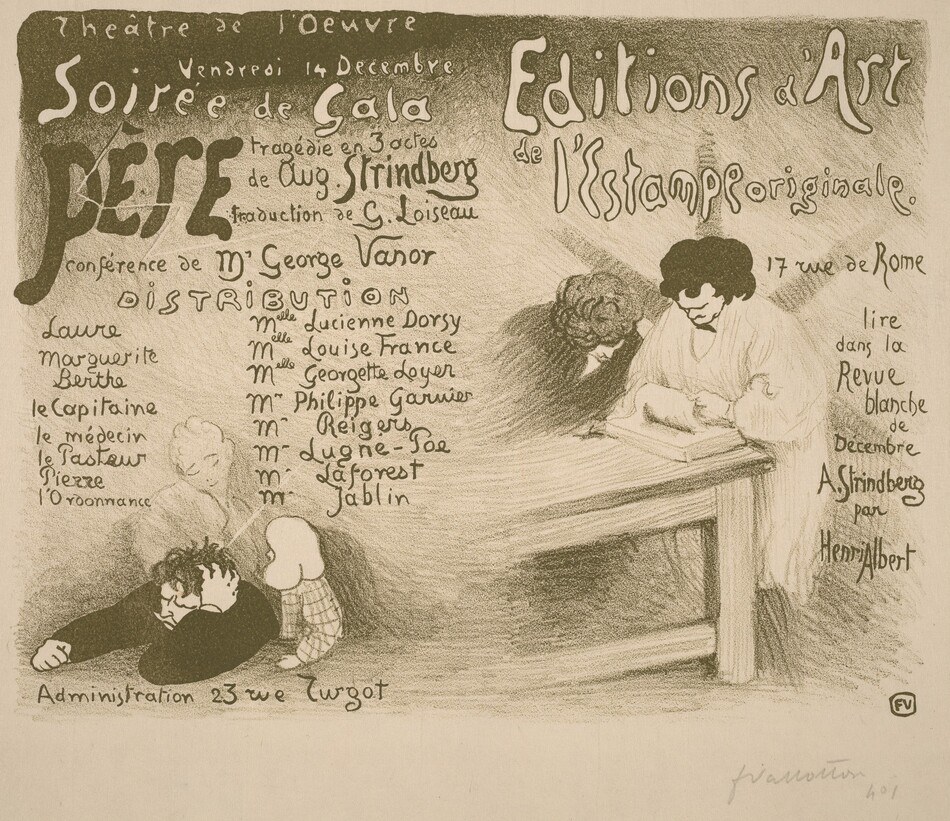 Theâtre de l'Oeuvre
Vendredi 14 Decembre
Soirée de Gala
PÈRE
tragédie en 3 actes
de Aug. Strindberg
traduction de G. Loiseau
conférence de Mr George Vanor
DISTRIBUTION
Laure Melle Lucienne Dorsy
Marguerite Melle Louise France
Berthe Melle Georgette Loyer
le Capitaine Mr Philippe Garnier
le médecin Mr Reigers
le Pasteur Mr Lugne-Poe
Pierre Mr Laforest
l'Ordonnance Mr Jablin
Administration 23 rue Turgot
Editions d'Art
de l'Estampe originale.
17 rue de Rome
lire
dans la
Revue
blanche
de
Decembre
A. Strindberg
par
Henri Albert
FV
fvallotton